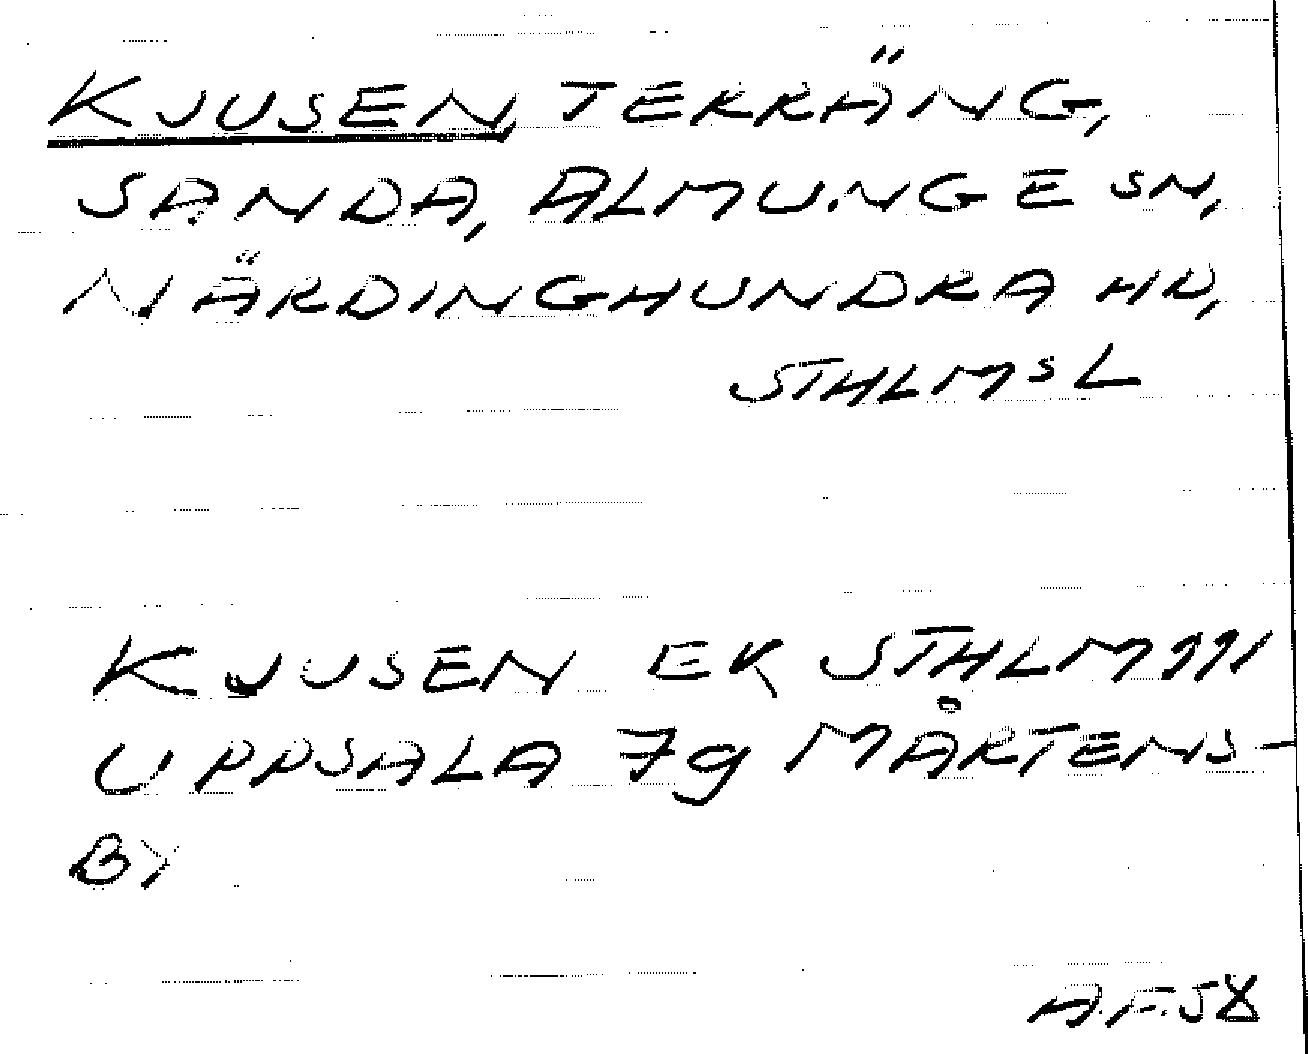 KJUSEN, TERRÄNG,
SANDA, ALMUNGE SN,
NÄRDINGHUNDRA HD,
STHLMS L
KJUSEN EK STHLM 111
UPPSALA 7g MÅRTENS-
BY
A.F. 58